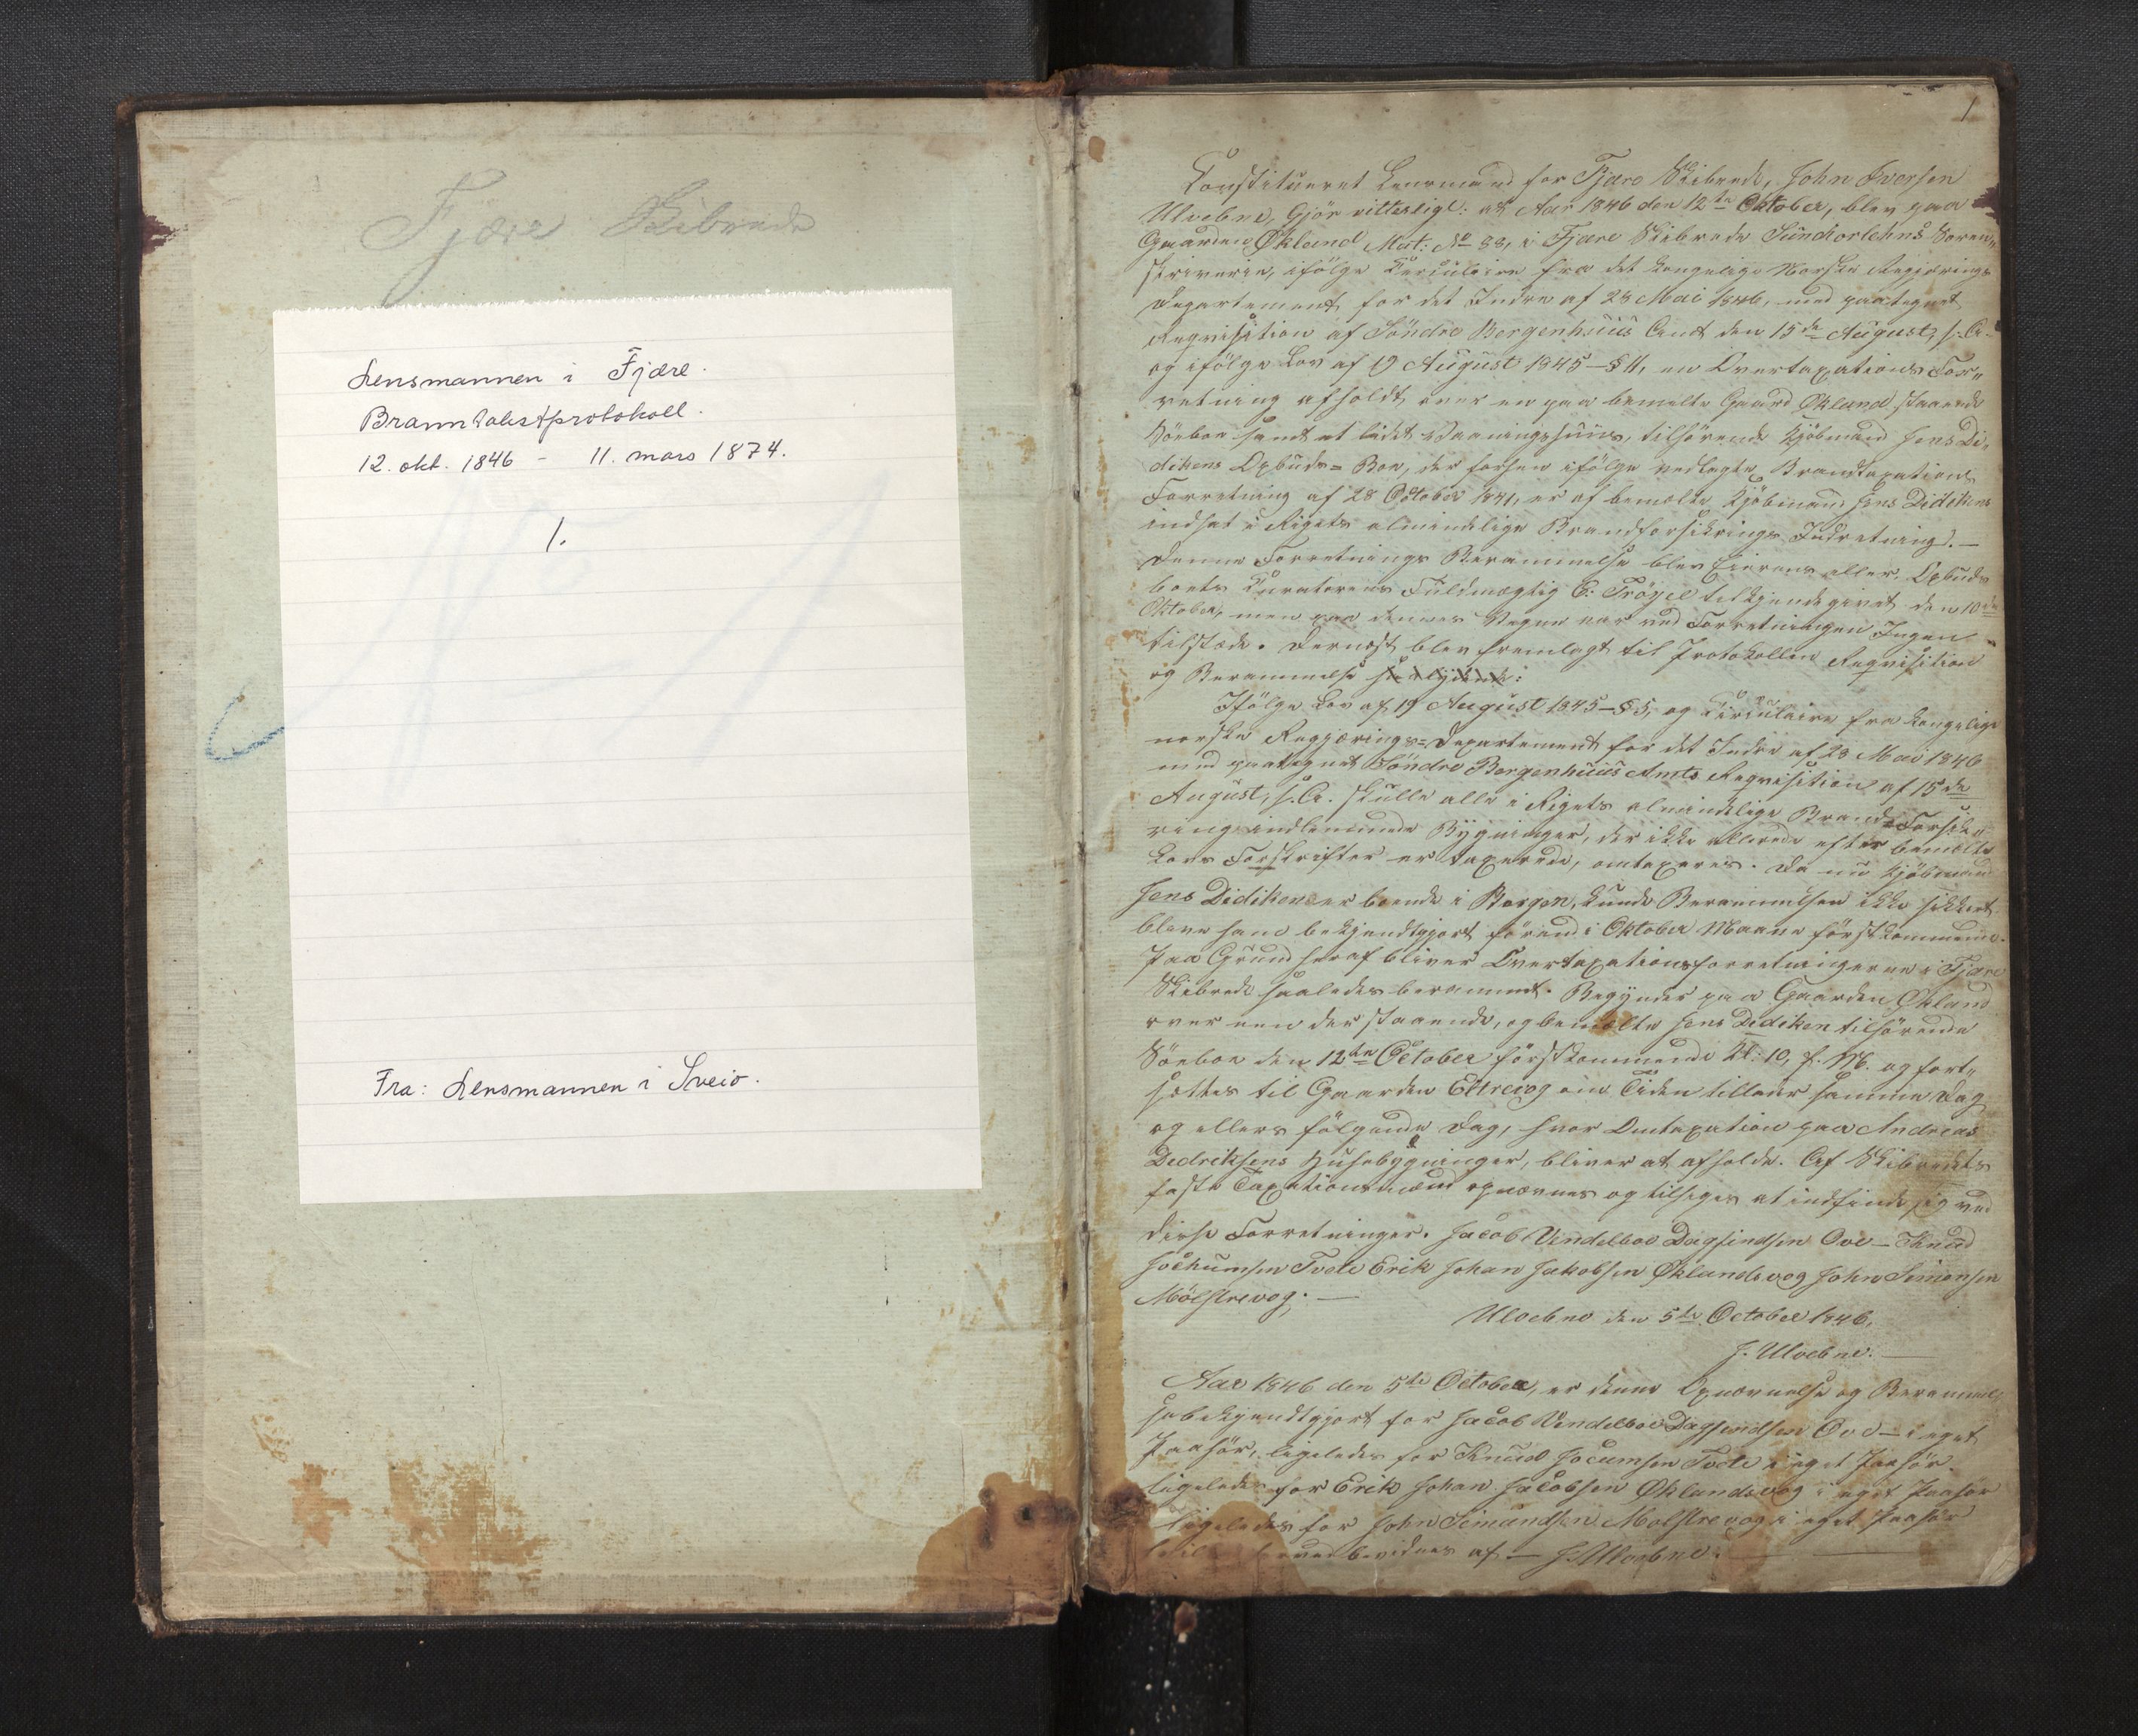 Fjære Skibrede
Lensmannen i Fjære.
Branntakstprotokoll.
12. okt. 1846 - 11. mars 1874.
1.
Fra: Lensmannen i Sveio.
1
Constitueret Lensmand for Fjære Skibrede, John Iversen
Ulvebne, Gjör vitterligt: at Aar 1846 den 12te Oktober, blev paa
Gaarden Økland Mat: No 88, i Fjære Skibrede Sündhorlehns Soren„
skriverie, ifölge Circulaire fra det kongelige Norske Regjerings
Departement for det Indre af 28 Mai 1846, med paategnet
Reqvisition af Söndre Bergenhuus Amt den 15de August, s. A.
og ifölge Lov af 19 August 1845 - § 11, en Overtaxations For„
retning afholdt over en paa bemelte Gaard Økland staaende
Söeboe samt et lidet Vaaningshuus, tilhörende Kjöbmand Jens Di„
dikens Opbuds=Boe, der forhen ifölge vedlagte Brandtaxations
Forretning af 28 October 1841, er af bemeldte Kjöbmand Jens Didiken
indsat i Rigets almindelige Brandforsikrings Indretning. —
Denne Forretnings Berammelse blev Eieren eller Opbuds
boets Curatorens Fuldmægtig C. Tröye tilkjendegivet den 10de
Oktober, men paa dennes Vegne var ved Forretningen Ingen
tilstæde. Dernæst blev fremlagt til Protokollen Reqvisition
og Berammelse saalydende:
Ifölge Lov af 19 August 1845 - § 5, og Circulaire fra kongelige
norske Regjerings=Departement for det Indre af 28 Mai 1846
med paategnet Söndre Bergenhuus Amts Reqvisition af 15de
August, s. A. skulle alle i Rigets almindelige Brand=Forsik„
ring indlemmede Bygninger, der ikke allerede efter bemelte
Lovs Forskrifter er taxerede, omtaxeres. Da nu Kjöbmand
Jens Didiken er boende i Bergen, kunde Berammelsen ikke sikkert
blive ham bekjendtgjort förend i Oktober Maane förstkommende.
Paa Grund heraf bliver Overtaxationsforretningerne i Fjære
Skibrede saaledes berammet. Begynder paa Gaarden Økland
over een der staaende, og bemelte Jens Dediken tilhörende
Söeboe den 12te October förstkommende Kl: 10, f. M. og fort„
sættes til Gaarden Eltrevog om Tiden tillader samme Dag
og ellers fölgende Dag, hvor Omtaxation paa Andreas
Dedriksens Husebygninger, bliver at afholde. Af Skibredets
faste Taxationsmænd opnævnes og tilsiges at indfinde sig ved
disse Forretninger. Jacob Vendelboe Dagfindsen Ove - Knud
Jochumsen Tvete Erik Johan Jakobsen Øklandsvog John Simonsen
Mölstrevog. —
Ulvebne den 5te October 1846.
J. Ulvebne. —
Aar 1846 den 5te October, er denne Opnævnelse og Berammel
se bekjendtgjort for Jacob Vendelboe Dagfindsen Ove - i eget
Paahör, ligeledes for Knud Jocumsen Tvete i eget Paahör.
ligeledes for Erik Johan Jacobsen Øklandsvog i eget Paahör
ligeledes for John Simundsen Mölstrevog i eget Paahör
bevidnes af - J. Ulvebne.